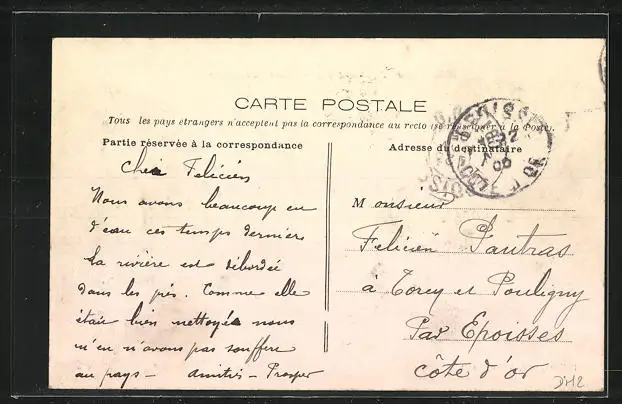 CARTE POSTALE
Tous les pays étrangers n'acceptent pas la correspondance au recto (se renseigner à la Poste).
Partie réservée à la correspondance
Cher Félicien
Nous avons beaucoup eu
d'eau ces temps derniers
la rivière est débordée
dans les prés. Comme elle
était bien nettoyée nous
n'en n'avons pas souffert
au pays - Amitiés - Prosper
Adresse du destinataire
Monsieur
Félicien Pautras
à Torcy et Pouligny
Par Epoisses
Côte d'or